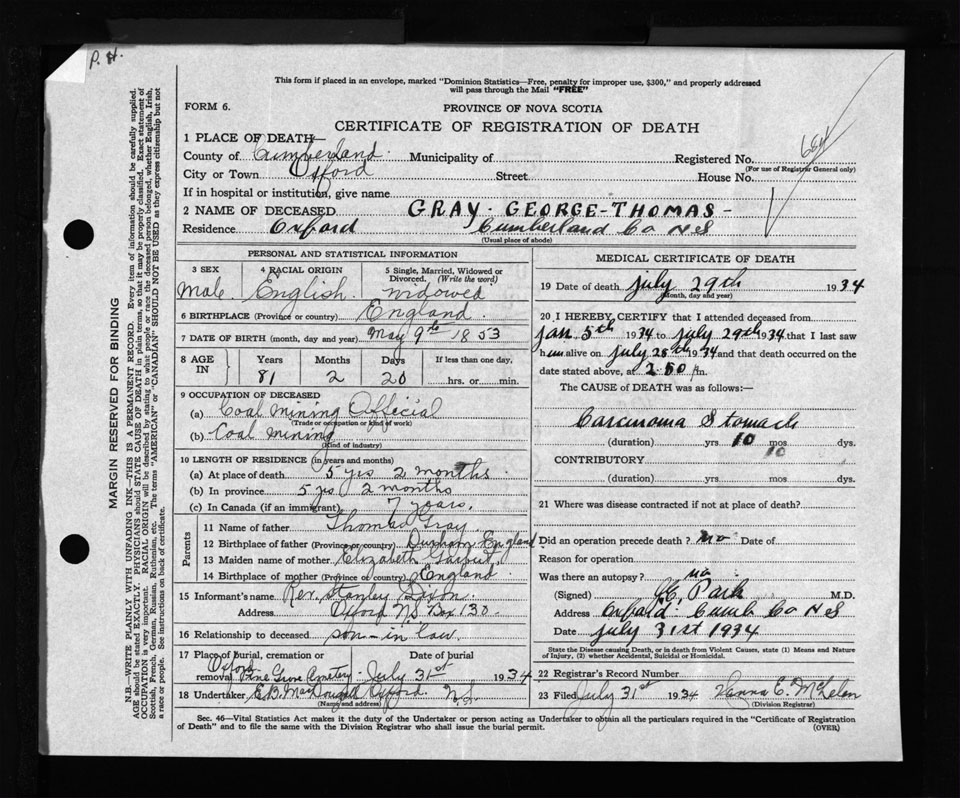 P. H.
This form if placed in an envelope, marked "Dominion Statistics—Free, penalty for improper use, $300," and properly addressed
will pass through the Mail "FREE"
FORM 6.
PROVINCE OF NOVA SCOTIA
CERTIFICATE OF REGISTRATION OF DEATH
1 PLACE OF DEATH—
County of Cumberland Municipality of Registered No.
(For use of Registrar General only)
City or Town Oxford Street House No.
If in hospital or institution, give name
2 NAME OF DECEASED GRAY - GEORGE - THOMAS -
Residence Oxford Cumberland Co N S
(Usual place of abode)
PERSONAL AND STATISTICAL INFORMATION
3 SEX 4 RACIAL ORIGIN 5 Single, Married, Widowed or
Divorced. (Write the word)
Male English widowed
6 BIRTHPLACE (Province or country) England
7 DATE OF BIRTH (month, day and year) May 9th 1853
8 AGE IN Years Months Days If less than one day,
81 2 20 hrs. or min.
9 OCCUPATION OF DECEASED
(a) Coal Mining Official
(Trade or occupation or kind of work)
(b) Coal Mining
(Kind of industry)
10 LENGTH OF RESIDENCE (in years and months)
(a) At place of death 5 yrs 2 months
(b) In province 5 yrs 2 months
(c) In Canada (if an immigrant) 7 years.
Parents
11 Name of father Thomas Gray
12 Birthplace of father (Province or country) Durham England
13 Maiden name of mother Elizabeth
14 Birthplace of mother (Province or country) England
15 Informant's name Rev. Stanley Dixon
Address Oxford N.S. Box 130.
16 Relationship to deceased son-in law.
17 Place of burial, cremation or removal Date of burial
Oxford Pine Grove Cemetery July 31st 1934
18 Undertaker E.B. Oxford N.S.
(Name and address)
MEDICAL CERTIFICATE OF DEATH
19 Date of death July 29th 1934
(Month, day and year)
20 I HEREBY CERTIFY that I attended deceased from
Jan. 5th 1934 to July 29th 1934 that I last saw
him alive on July 28th 1934 and that death occurred on the
date stated above, at m.
The CAUSE OF DEATH was as follows:—
Carcinoma Stomach
(duration) yrs 10 mos dys.
CONTRIBUTORY
10
(duration) yrs mos dys.
21 Where was disease contracted if not at place of death?
Did an operation precede death? no Date of
Reason for operation
Was there an autopsy? no
(Signed) Park M.D.
Address Oxford Cumb Co N S
Date July 31st 1934
State the Disease causing Death, or in death from Violent Causes, state (1) Means and Nature
of Injury, (2) whether Accidental, Suicidal or Homicidal.
22 Registrar's Record Number
23 Filed July 31st 1934
(Division Registrar)
Sec. 46—Vital Statistics Act makes it the duty of the Undertaker or person acting as Undertaker to obtain all the particulars required in the "Certificate of Registration
of Death" and to file the same with the Division Registrar who shall issue the burial permit.
(OVER)
MARGIN RESERVED FOR BINDING
N.B.—WRITE PLAINLY WITH UNFADING INK—THIS IS A PERMANENT RECORD. Every item of information should be carefully supplied.
AGE should be stated EXACTLY. PHYSICIANS should STATE CAUSE OF DEATH in plain terms, so that it may be properly classified. Exact statement of
OCCUPATION is very important. RACIAL ORIGIN will be described by stating to what people or race the deceased person belonged, whether English, Irish,
Scottish, French, German, Russian, Ruthenian, etc. The terms "AMERICAN" or "CANADIAN" SHOULD NOT BE USED as they express citizenship but not
a race or people. See instructions on back of certificate.